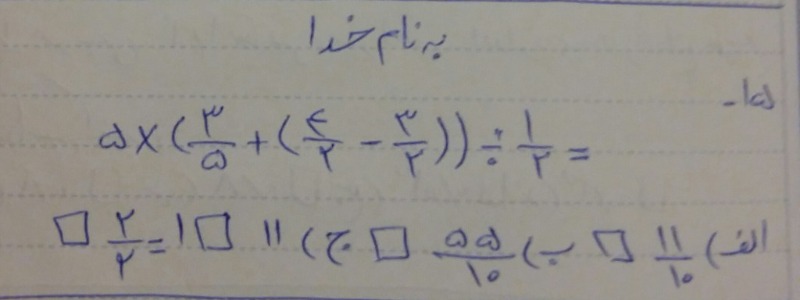 به نام خدا
۱۵-
۵ × (۳/۵ + (۴/۲ - ۳/۲)) ÷ ۱/۲ =
الف) ۱۱/۱۰ □ ب) ۵۵/۱۰ □ ج) ۱۱ □ ۱ = ۲/۲ □